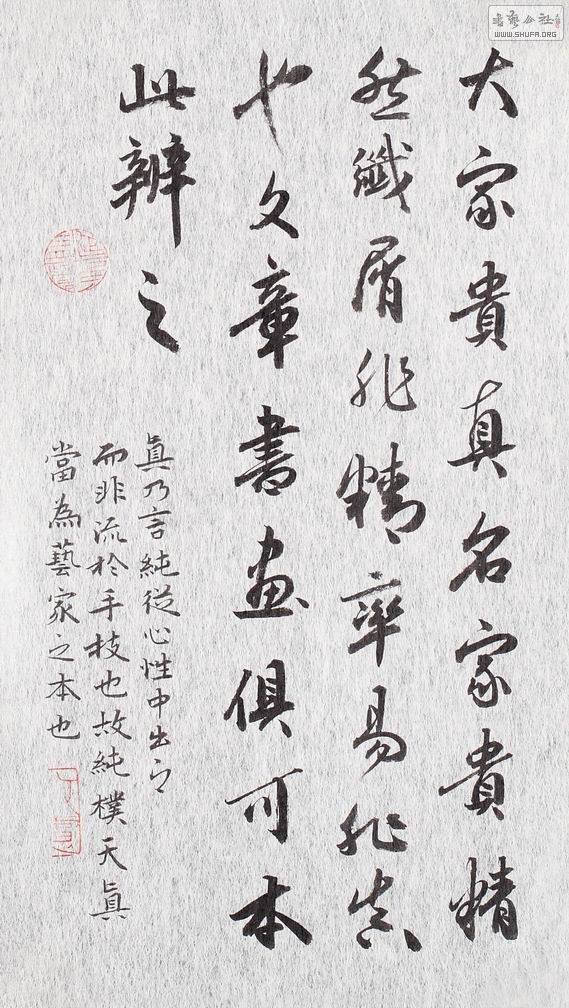 大家貴真名家貴精
然纖屑非精率易非真
也文章書画俱可本
此辨之
真乃言純從心性中出之
而非流於手技也故純樸天真
當為藝家之本也
书艺公社
WWW.SHUFA.ORG